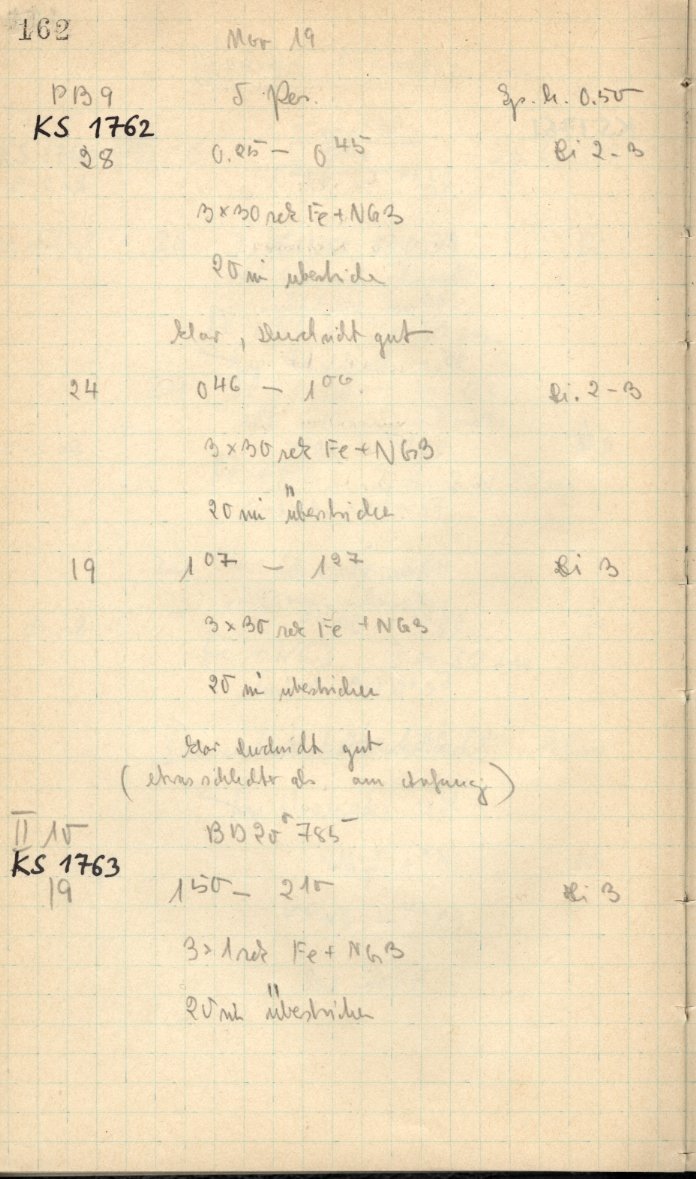 162
Nov 19
PB9 δ Per. Sp. h. 0.50
KS 1762
28 0.25 – 0 45 Li 2-3
3×30 sek Fe + NG3
20 mi überstrichen
klar, Durchsicht gut
24 0 46 – 1 06. Li. 2-3
3×30 sek Fe + NG3
20 mi überstrichen
19 1 07 – 1 27 Li 3
3×30 sek Fe + NG3
20 mi überstrichen
klar Durchsicht gut
(etwas schlechter als am Anfang)
II 10 BD 20° 785
KS 1763
19 1 50 – 2 10 Li 3
3×1 sek Fe + NG3
20 min überstrichen